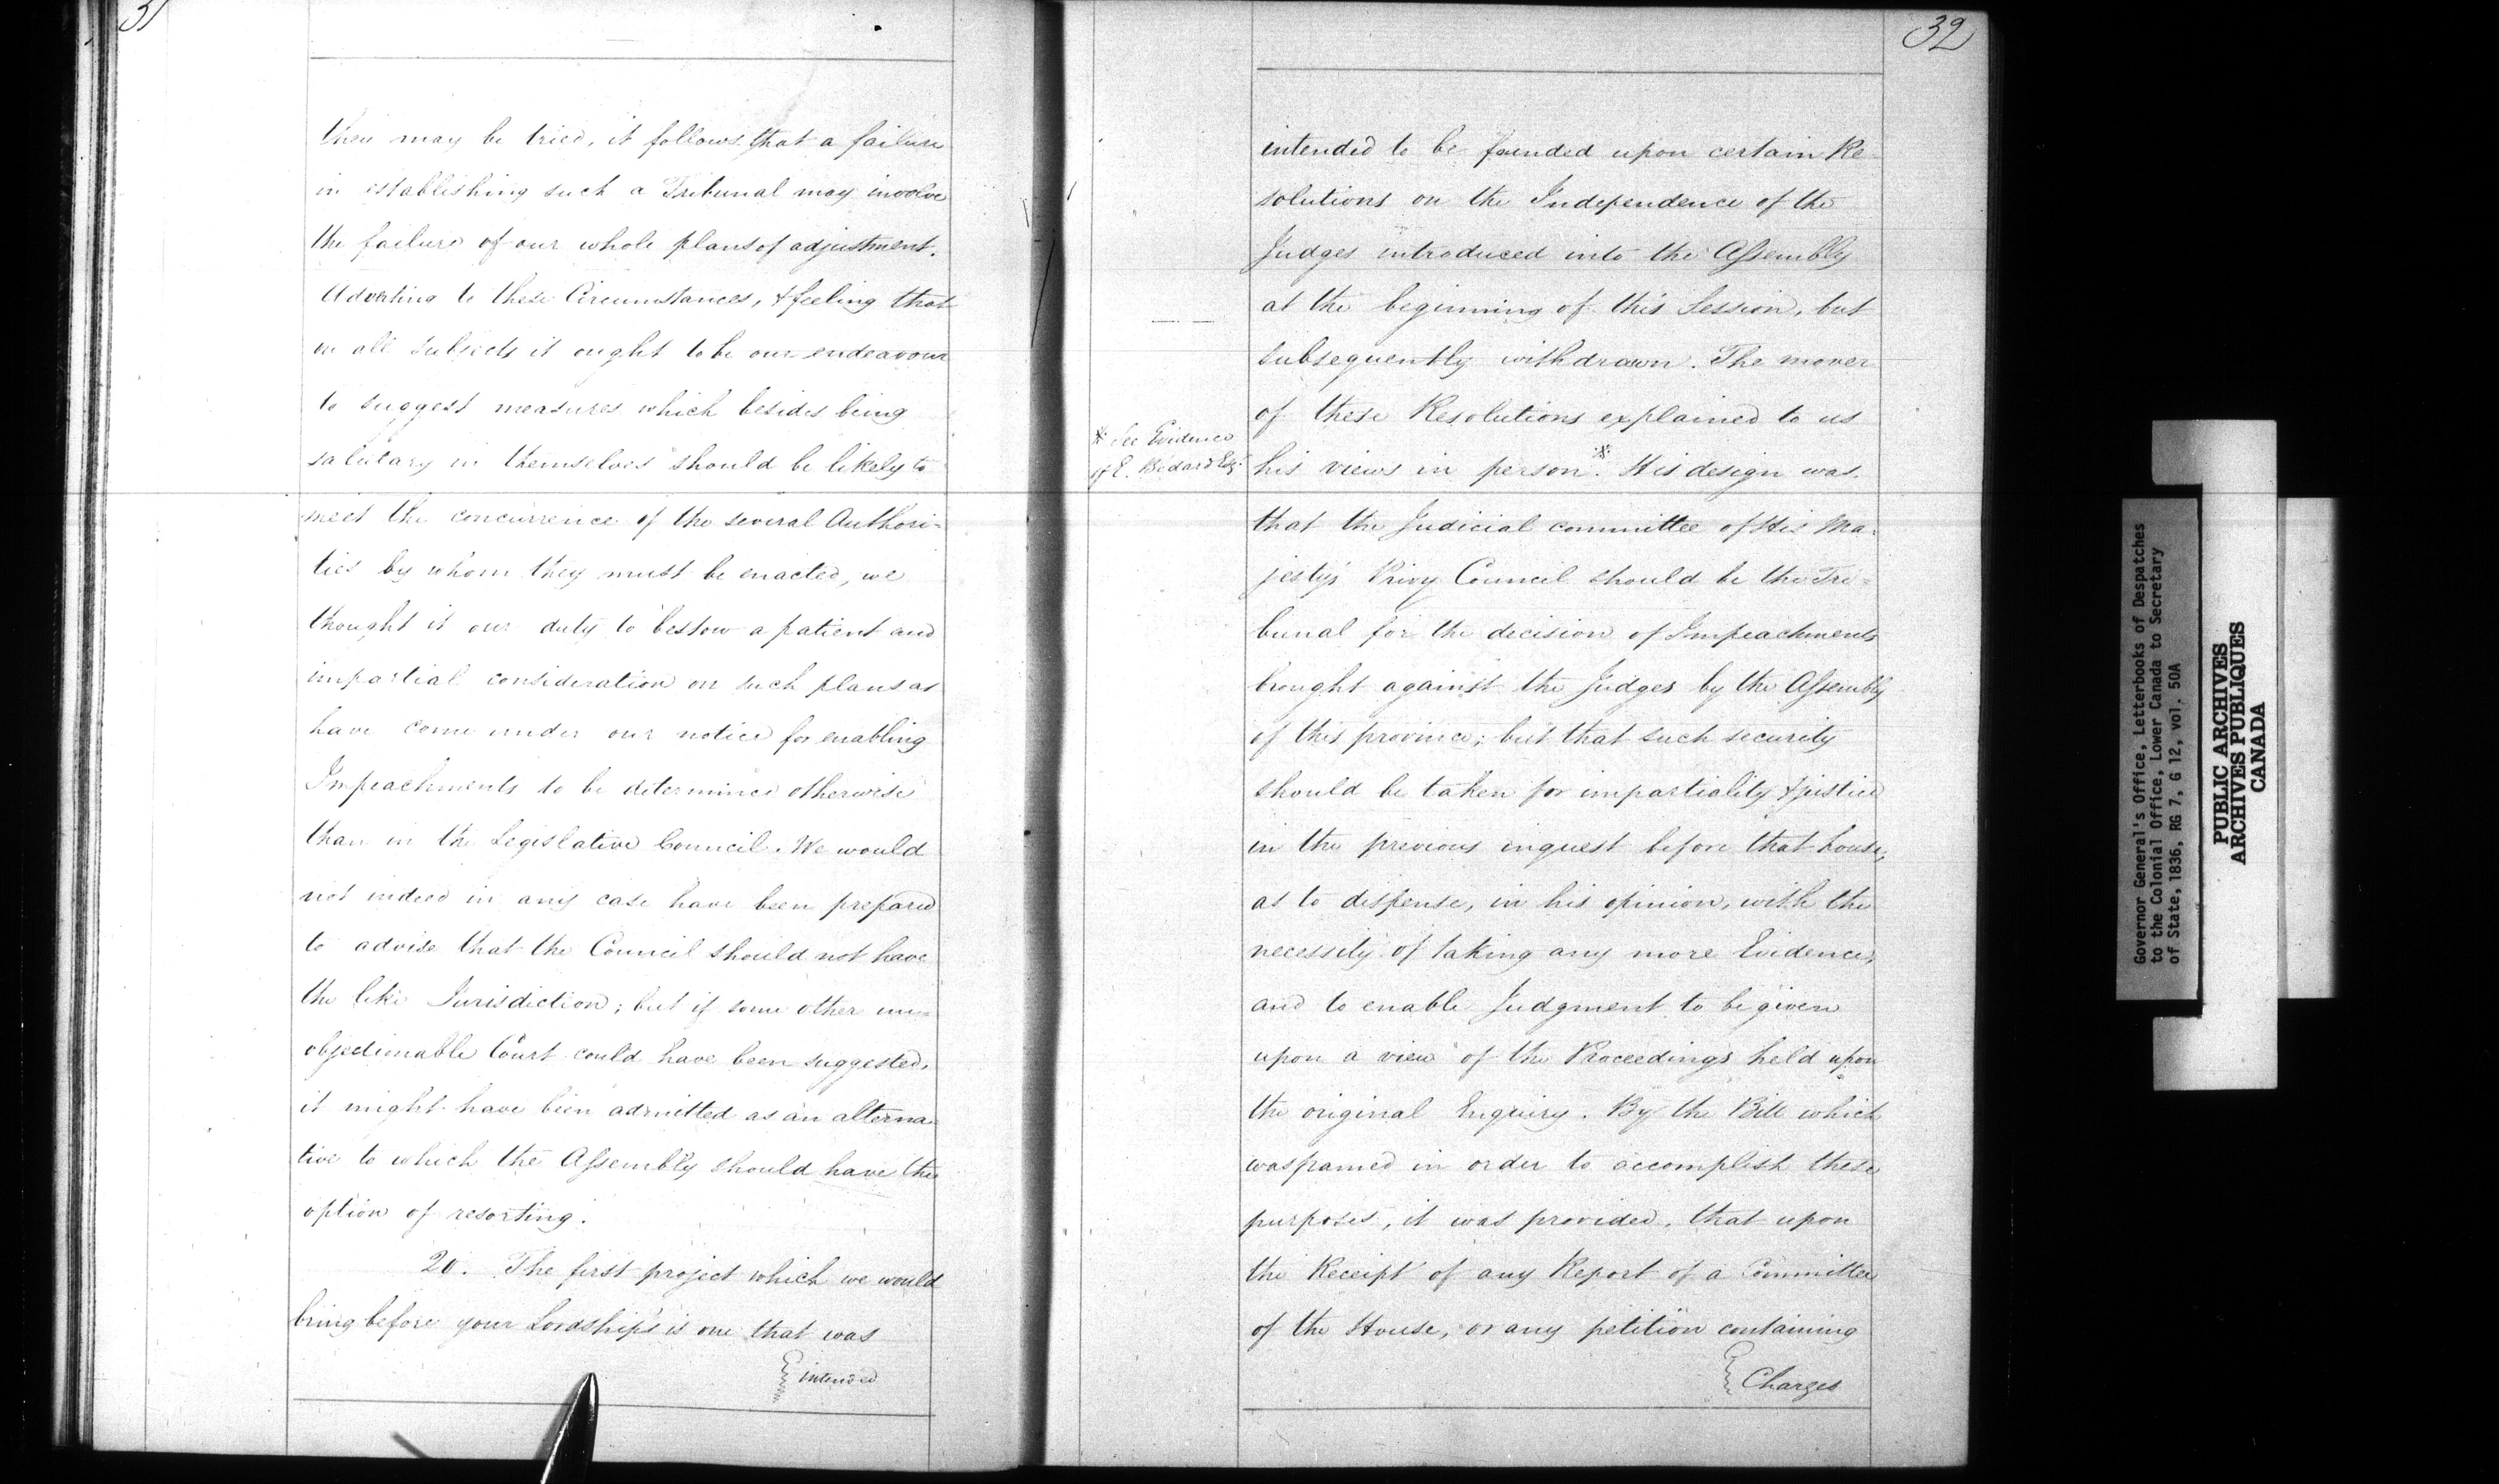 31
they may be tried, it follows that a failure
in establishing such a Tribunal may involve
the failure of our whole plans of adjustment.
Adverting to these Circumstances, & feeling that
on all subjects it ought to be our endeavour
to suggest measures which besides being
salutary in themselves should be likely to
meet the concurrence of the several Authori=
ties by whom they must be enacted, we
thought it our duty to bestow a patient and
impartial consideration on such plans as
have come under our notice for enabling
Impeachments to be determined otherwise
than in the Legislative Council. We would
not indeed in any case have been prepared
to advise that the Council should not have
the like Jurisdiction; but if some other un=
objectionable Court could have been suggested,
it might have been admitted as an alterna=
tive to which the Assembly should have the
option of resorting.
20. The first project which we would
bring before your Lordships is one that was
intended
32
intended to be founded upon certain Re
solutions on the Independence of the
Judges introduced into the Assembly
at the beginning of this Session, but
subsequently withdrawn. The mover
of these Resolutions explained to us
* See Evidence
of E. Bedard Esqr
his views in person.* His design was
that the Judicial committee of His Ma=
jesty's Privy Council should be the Tri=
bunal for the decision of Impeachments
brought against the Judges by the Assembly
of this province; but that such security
should be taken for impartiality & justice
in the previous inquest before that house,
as to dispense, in his opinion, with the
necessity of taking any more Evidence,
and to enable Judgment to be given
upon a view of the Proceedings held upon
the original Enquiry. By the Bill which
was framed in order to accomplish these
purposes, it was provided, that upon
the Receipt of any Report of a Committee
of the House, or any petition containing
Charges
Governor General's Office, Letterbooks of Despatches
to the Colonial Office, Lower Canada to Secretary
of State, 1836, RG 7, G 12, vol. 50A
PUBLIC ARCHIVES
ARCHIVES PUBLIQUES
CANADA